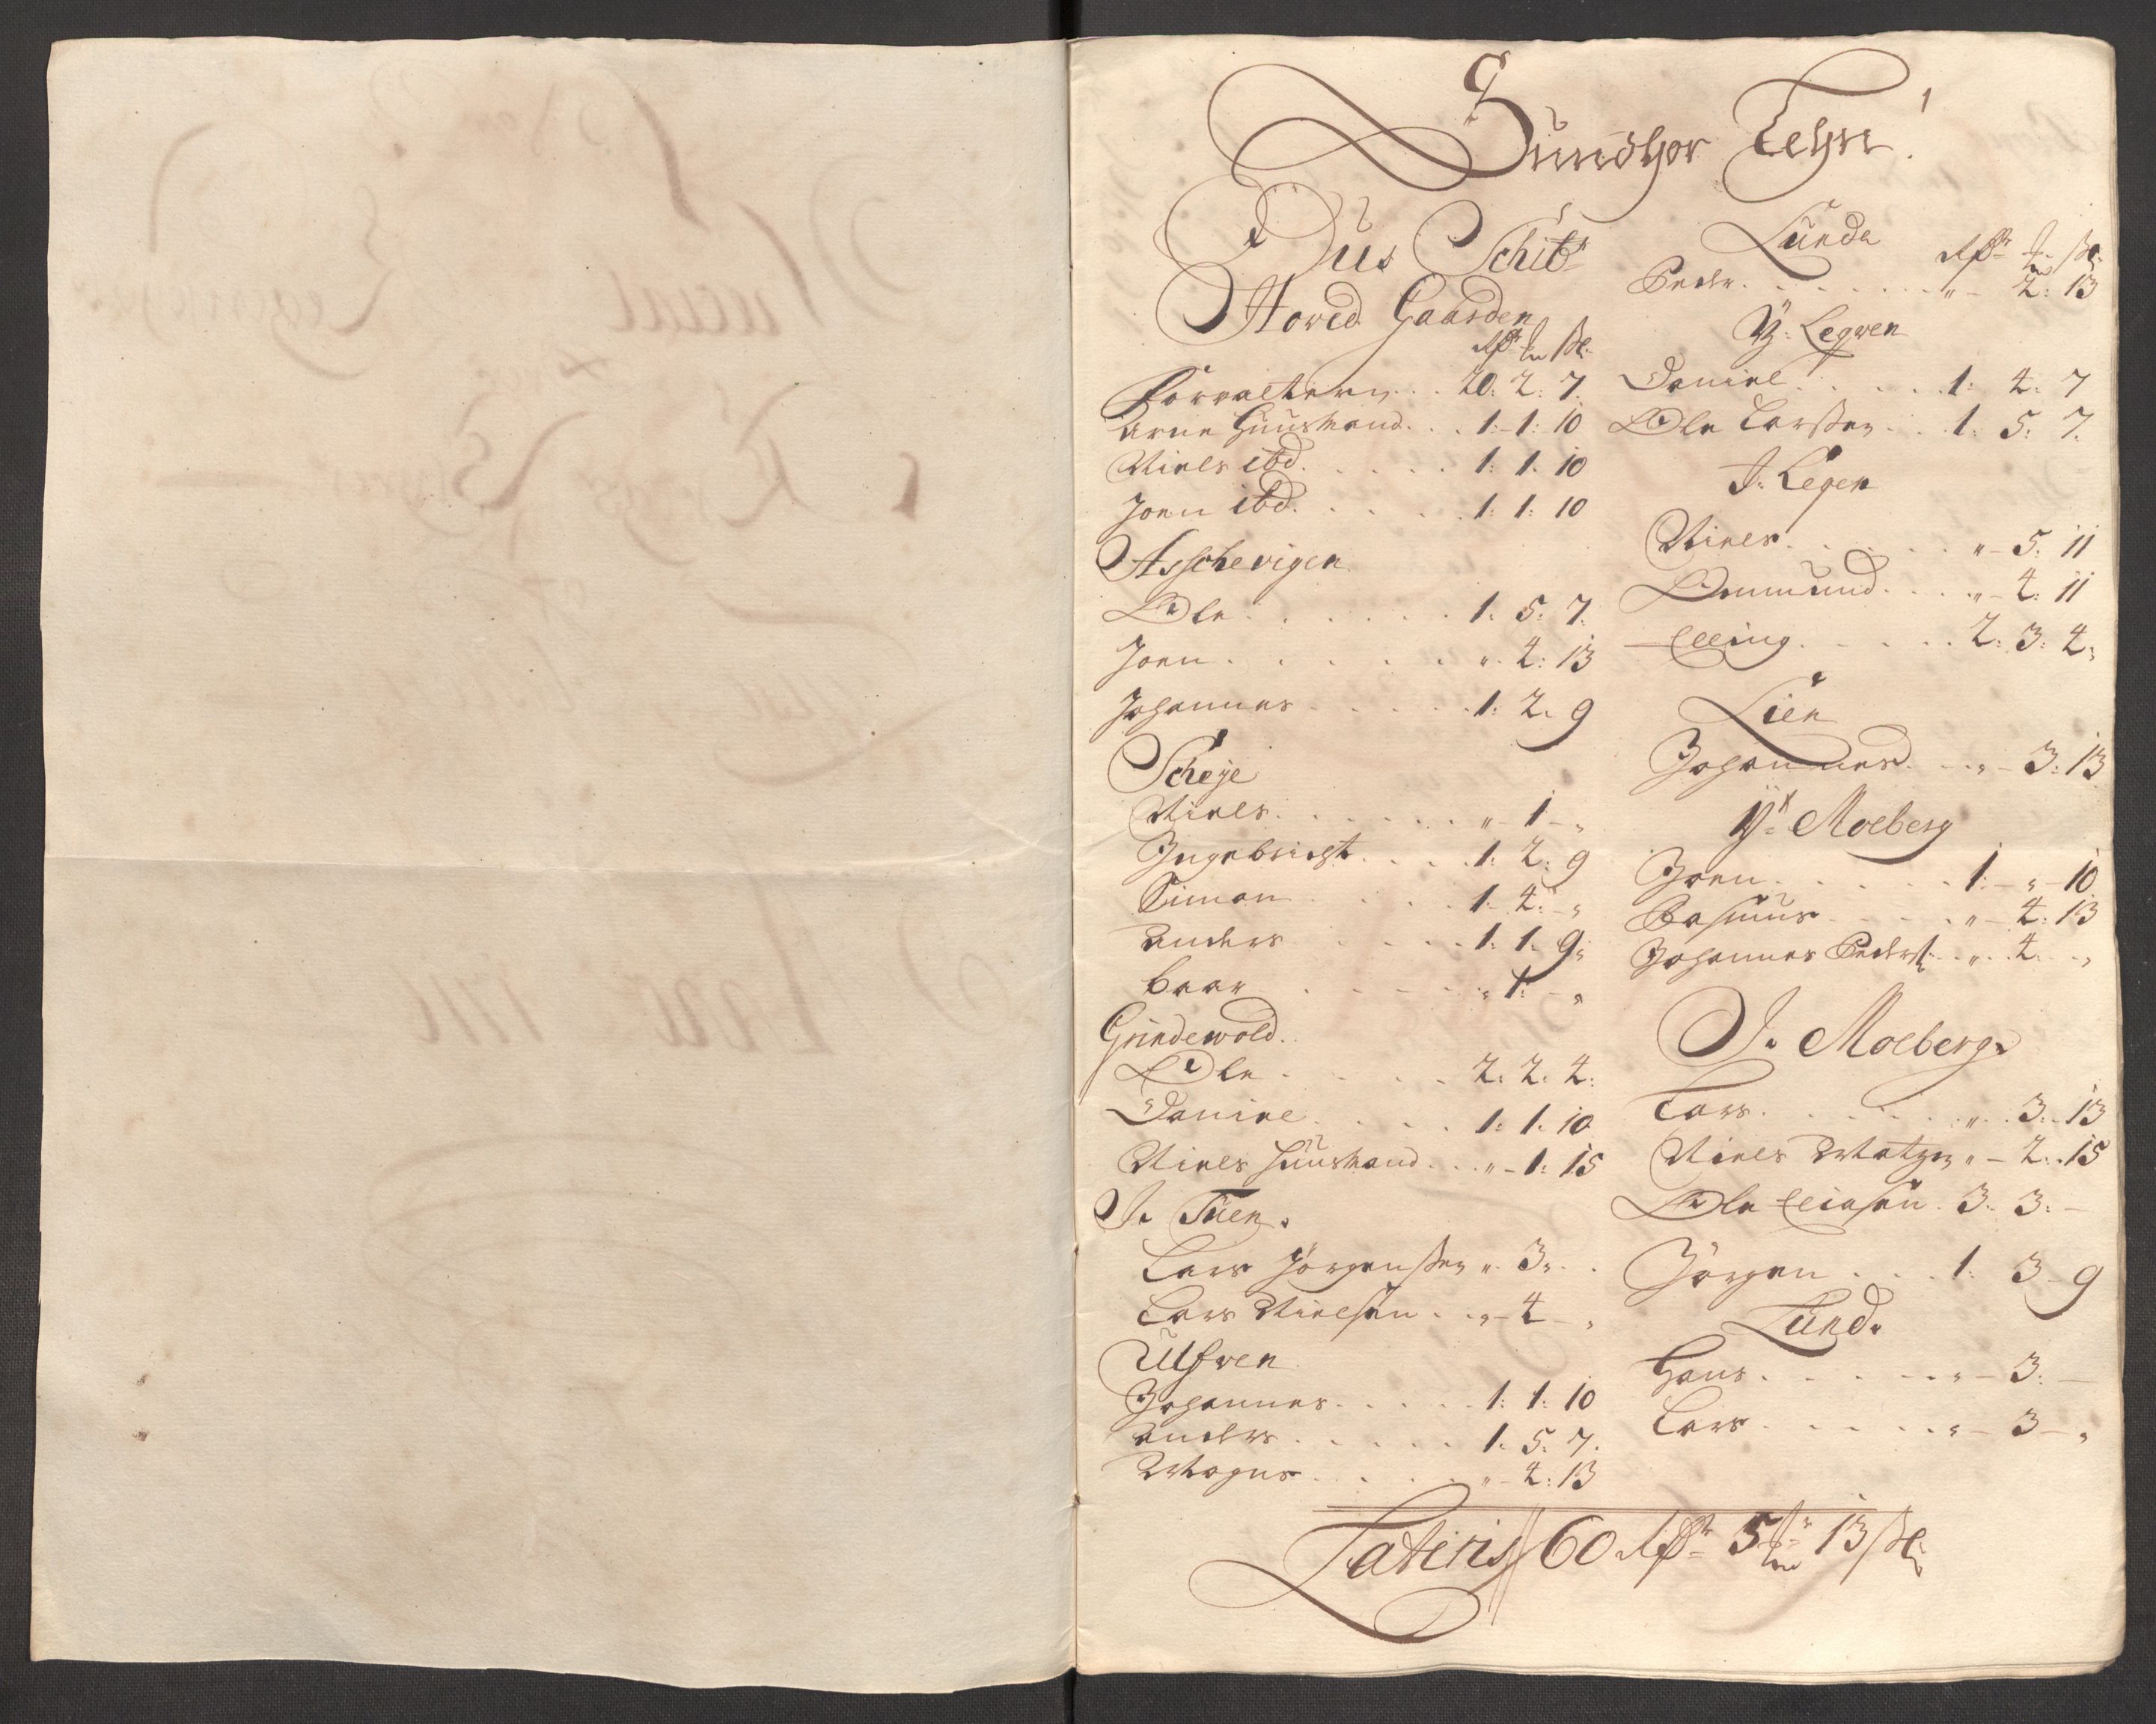 1
Sundhor Lehn.
Øus Schibr
Hoved Gaarden
Rdr mk ß
Forvalteren . . 20. 2. 7.
Arne Huusmand . . 1. 1. 10
Niels ibd. . . . . 1. 1. 10
Joen ibd. . . . . 1. 1. 10
Asschevigen
Ole . . . . . 1. 5. 7.
Joen . . . . . " 4. 13
Johannes . . . . 1. 2. 9
Scheje
Niels . . . . . " 1 - "
Ingebricht . . . 1. 2. 9
Simon . . . . 1. 4. "
Anders . . . . 1. 1. 9.
Baar . . . . " 1. - "
Grindewold.
Ole . . . . 2. 2. 4.
Daniel . . . . 1. 1. 10
Niels Huusmand . . " - 1. 15
I. Tuen.
Lars Jörgenßen " 3 " .
Lars Nielsen . . " - 4 - "
Ulfven
Johannes . . . . 1. 1. 10
Anders . . . . 1. 5. 7.
Mogns . . . . " - 4. 13
Lunde
Rdr mk ß
Peder . . . . . " - 2. 13
Y. Legven
Daniel . . . . 1. 4. 7
Ole Larßen . . 1. 5. 7.
I. Legen
Niels . . . . " - 5. 11
Ommund . . . " - 4. 11
Elling . . . . 2. 3. 4.
Lien
Johannes . . " - 3. 13
Y. Moeberg
Joen . . . . 1. - " - 10
Rasmus . . . . " - 4. 13
Johannes Peders. . . " . 4. . "
I. Moeberg.
Lars . . . . " . 3. . 13
Niels Matzen " - 2. . 15
Ole Ellensen . 3. 3. -
Jörgen . . . 1. 3 - 9
Lund.
Hans . . . . " - 3. -
Lars . . . . " - 3 - "
Lateris 60 Rdr 5 mk 13 ß